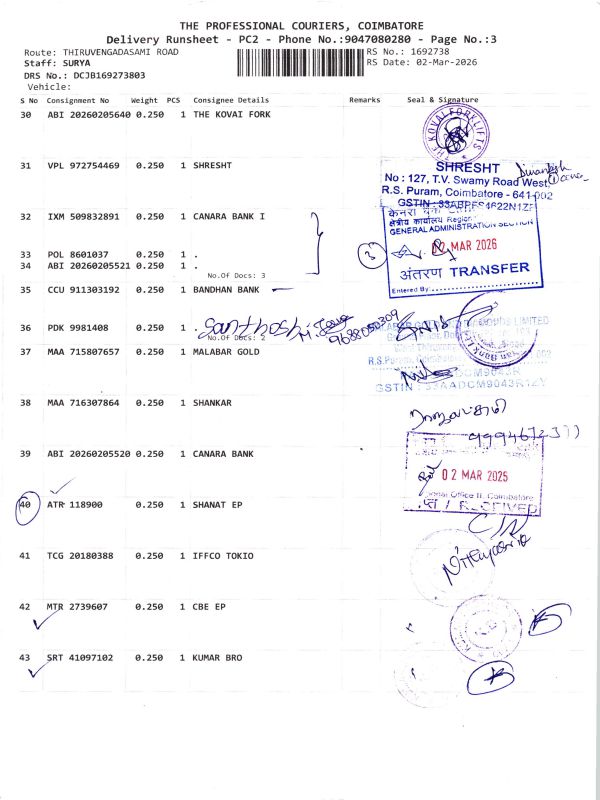 THE PROFESSIONAL COURIERS, COIMBATORE
Delivery Runsheet - PC2 - Phone No.:9047080280 - Page No.:3
Route: THIRUVENGADASAMI ROAD
RS No.: 1692738
Staff: SURYA
RS Date: 02-Mar-2026
DRS No.: DCJB169273803
Vehicle:
S No Consignment No Weight PCS Consignee Details Remarks Seal & Signature
30 ABI 20260205640 0.250 1 THE KOVAI FORK
THE KOVAI FORKLIFTS
31 VPL 972754469 0.250 1 SHRESHT
SHRESHT
No : 127, T.V. Swamy Road West,
R.S. Puram, Coimbatore - 641 002
32 IXM 509832891 0.250 1 CANARA BANK I
केनरा बैंक
क्षेत्रीय कार्यालय Regional
GENERAL ADMINISTRATION SECTION
02 MAR 2026
33 POL 8601037 0.250 1 .
34 ABI 20260205521 0.250 1 .
3
अंतरण TRANSFER
No.Of Docs: 3
Entered By:
35 CCU 911303192 0.250 1 BANDHAN BANK
36 PDK 9981408 0.250 1 .
Santhosh
9688050309
No.Of Docs: 2
37 MAA 715807657 0.250 1 MALABAR GOLD
LIMITED
R.S.Puram, Coimbatore
GSTIN : 33AADCM9043R1ZY
38 MAA 716307864 0.250 1 SHANKAR
39 ABI 20260205520 0.250 1 CANARA BANK
02 MAR 2025
Office II, Coimbatore
RECEIVED
40 ATR 118900 0.250 1 SHANAT EP
41 TCG 20180388 0.250 1 IFFCO TOKIO
42 MTR 2739607 0.250 1 CBE EP
43 SRT 41097102 0.250 1 KUMAR BRO